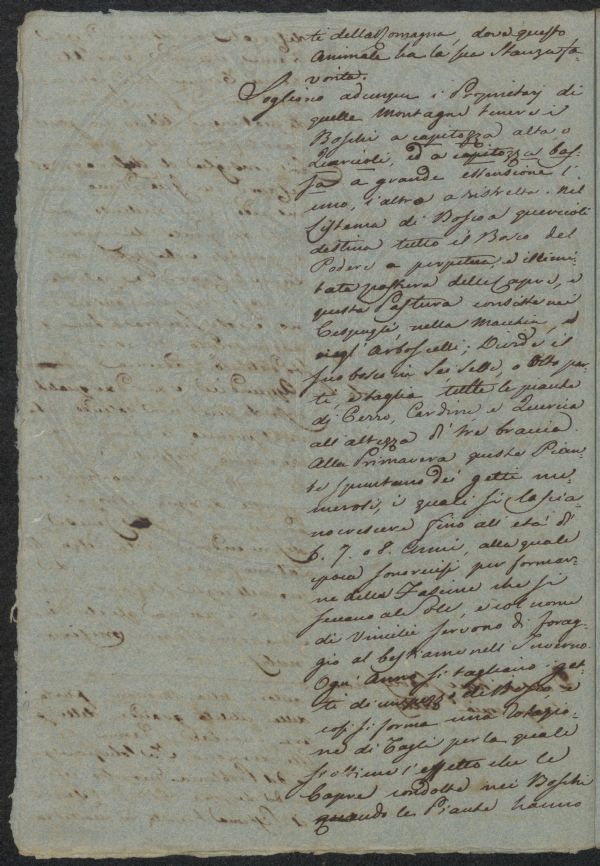 ti della Romagna, dove questo
Animale ha la sua Stanza fa-
vorita.
Sogliono adunque i Proprietarj di
quelle Montagne tenere i
Boschi a capitozza alta o
Quercioli, ed a capitozza bas-
sa a grande estensione l'
uno, l'altro a ristretta. Nel
Sistema di Bosco a quercioli
destina tutto il Bosco del
Podere a perpetua, e illimi-
tata pastura delle Capre, e
questa Pastura consiste nei
Cespugli, nella Macchia, e
negl'Arboscelli; Divide il
suo bosco in Sei Sette, o Otto par-
ti, e taglia tutte le piante
di Cerro, Cardine e Quercia
all'altezza di tre braccia.
Alla Primavera queste Pian-
te spuntano dei getti nu-
merosi, i quali si lascia-
no crescere fino all'età di
6. 7. o 8. Anni, alla quale
epoca sono recisi per formar-
ne delle Fascine che si
seccano al Sole, e col nome
di Vimilie servono di forag-
gio al bestiame nell'Inverno.
Ogni Anno si tagliano i get-
ti di un pezzo di Bosco e
così si forma una Rotazio-
ne di Tagli per la quale
si ottiene l'effetto che le
Capre condotte nei Boschi
quando le Piante hanno